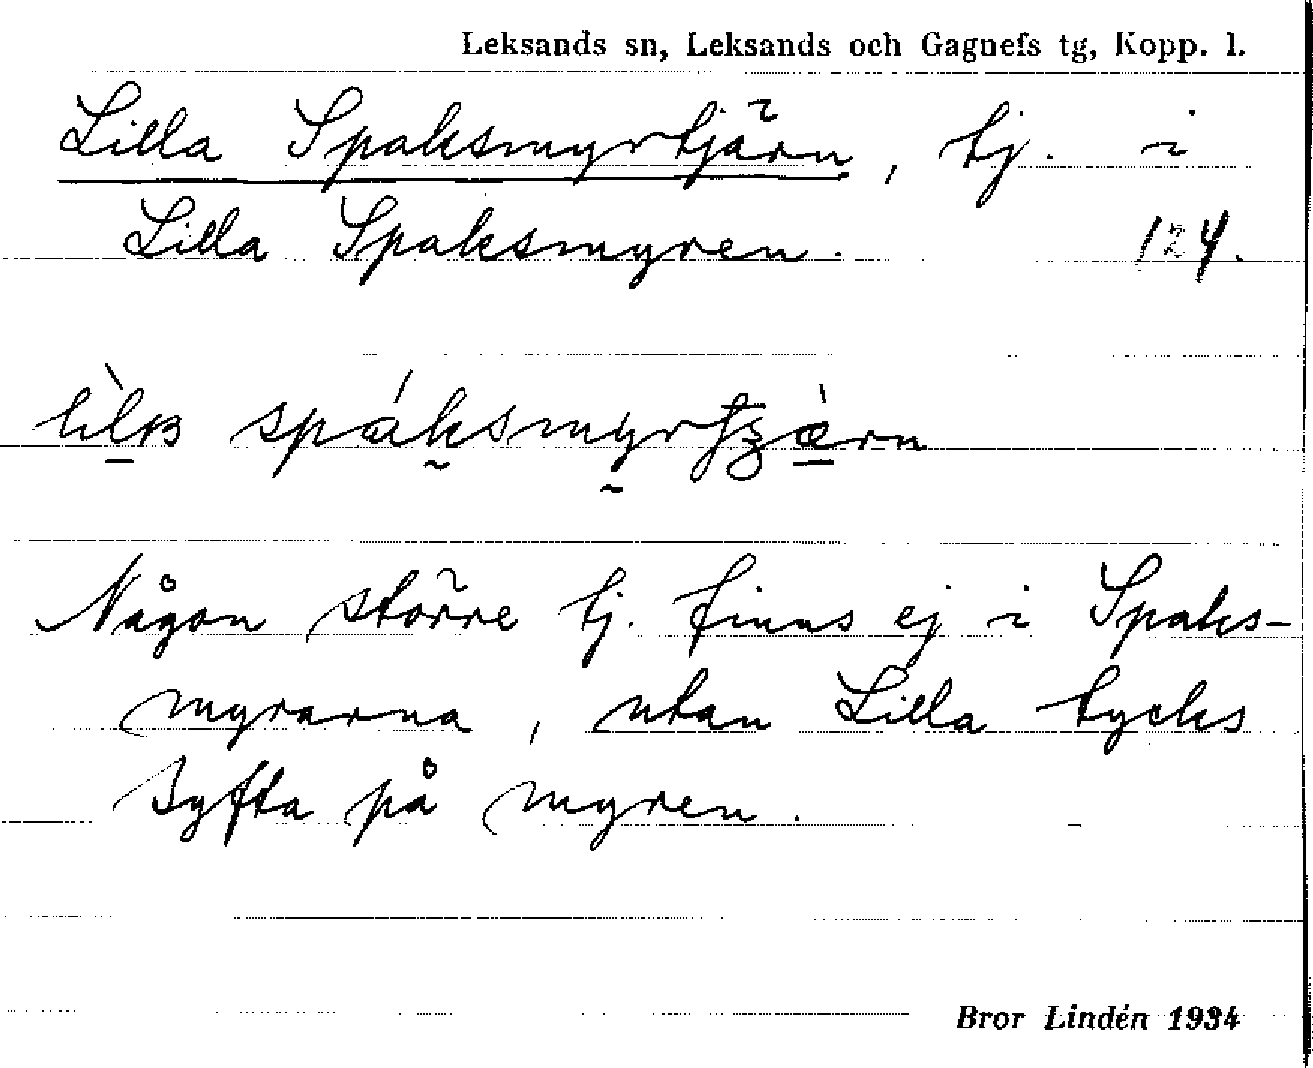 Leksands sn, Leksands och Gagnefs tg, Kopp. l.
Lilla Spaksmyrtjärn, tj. i
Lilla Spaksmyren. 124.
Någon större tj. finns ej i Spaks-
myrarna, utan Lilla tycks
syfta på myren.
Bror Lindén 1934